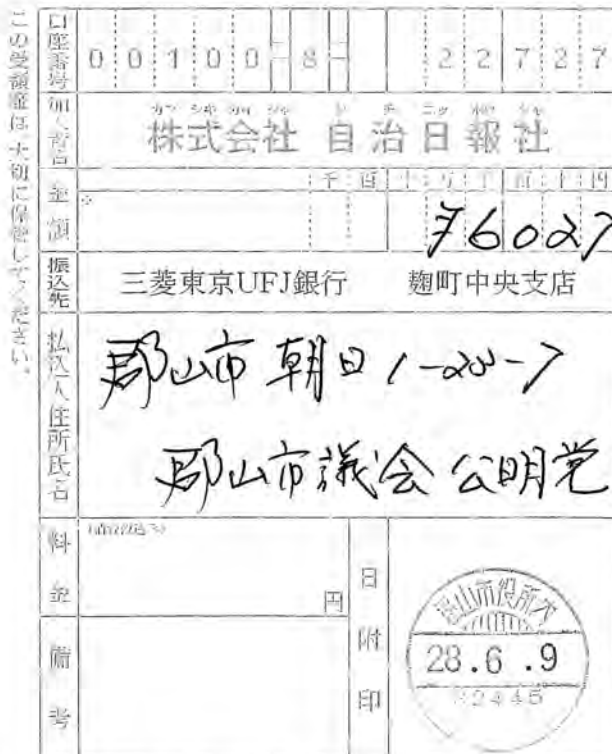 この受領証は、大切に保管してください。
口座番号 00100-8- 22727
加入者名
カブ シキ カイ シャ ジ チ ニッ ポウ シャ
株式会社 自治日報社
金額
千 百 十 万 千 百 十 円
※
¥6027
振込先 三菱東京UFJ銀行 麹町中央支店
払込人住所氏名
郡山市 朝日 1-23-7
郡山市議会 公明党
料金
円
備考
日附印
郡山市役所内
28.6.9